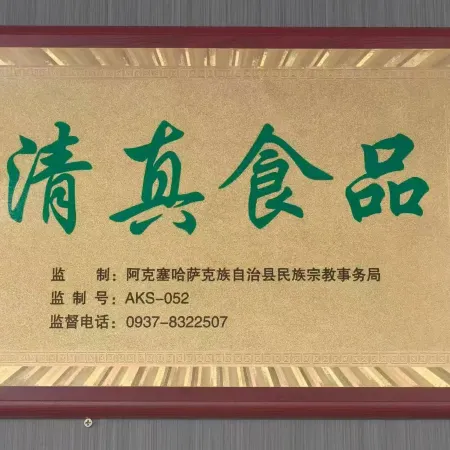 清真食品
监 制：阿克塞哈萨克族自治县民族宗教事务局
监 制 号：AKS-052
监督电话：0937-8322507